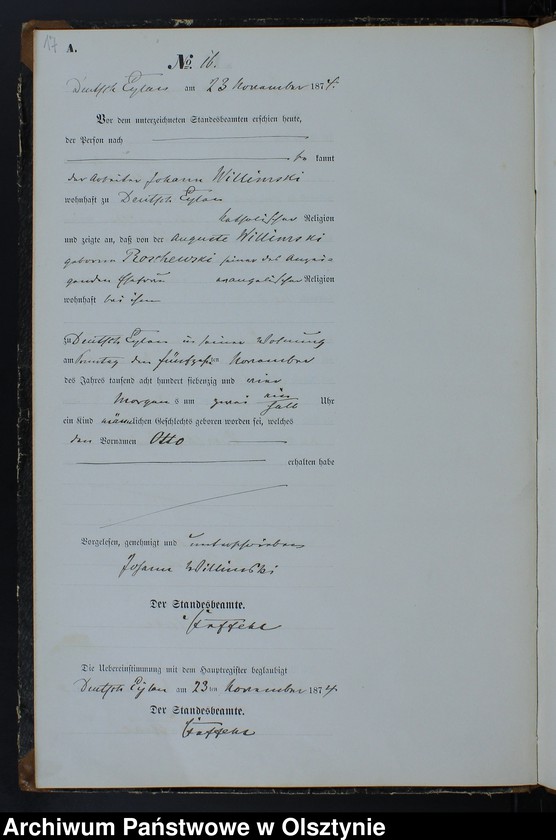 17
A.
No. 16.
Deutsch Eylau am 23 November 1874.
Vor dem unterzeichneten Standesbeamten erschien heute,
der Person nach
be kannt
der Arbeiter Johann Willimski
wohnhaft zu Deutsch Eylau
katholischer Religion
und zeigte an, daß von der Auguste Willimski
geborene Roschewski seiner des Anzei-
genden Ehefrau evangelischer Religion
wohnhaft bei ihm
zu Deutsch Eylau in seiner Wohnung
am Sonntag den fünfzehnten November
des Jahres tausend acht hundert siebenzig und vier
Morgens um zwei ein halb Uhr
ein Kind männlichen Geschlechts geboren worden sei, welches
den Vornamen Otto
erhalten habe
Vorgelesen, genehmigt und unterschrieben
Johann Willimski
Der Standesbeamte.
Die Uebereinstimmung mit dem Hauptregister beglaubigt
Deutsch Eylau am 23ten November 1874.
Der Standesbeamte.
Archiwum Państwowe w Olsztynie